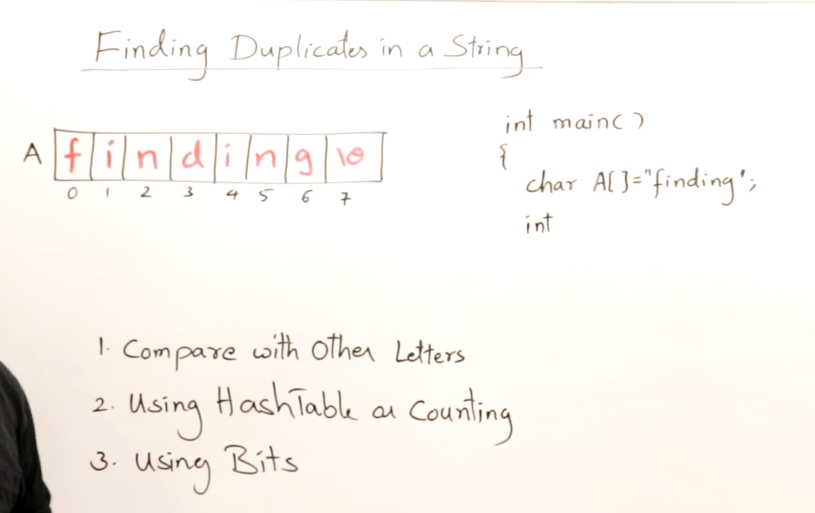 Finding Duplicates in a String
A f i n d i n g \0
0 1 2 3 4 5 6 7
int main()
{
char A[]="finding';
int
1. Compare with Other Letters
2. Using HashTable or Counting
3. Using Bits